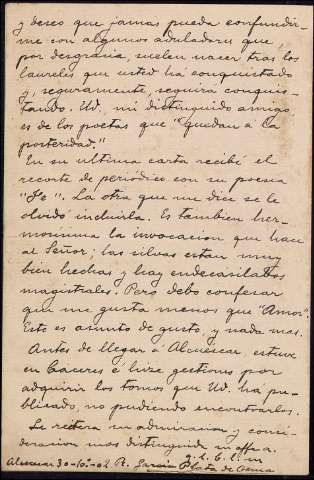 y deseo que jamas pueda confundir-
me con algunos aduladores que,
por desgracia, suelen nacer tras los
laureles que usted ha conquistado
y, seguramente, seguirá conquis-
tando. Ud, mi distinguido amigo,
es de los poetas que "quedan á la
posteridad."
En su ultima carta recibí el
recorte de periódico con su poesia
"Fe". La otra que me dice se le
olvidó incluirla. Es tambien her-
mosisima la invocacion que hace
al Señor; las silvas estan muy
bien hechas y hay endecasilabos
magistrales. Pero debo confesar
que me gusta menos que "Amor".
Esto es asunto de gusto, y nada mas.
Antes de llegar á Alcuescar estuve
en Caceres é hice gestiones por
adquirir los tomos que Ud. ha pu-
blicado, no pudiendo encontrarlos.
Le reitera su admiracion y consi-
deracion mas distinguida
q. l. b. l. m
Alcuescar 30-10-02 R. Garcia Plata de Osma